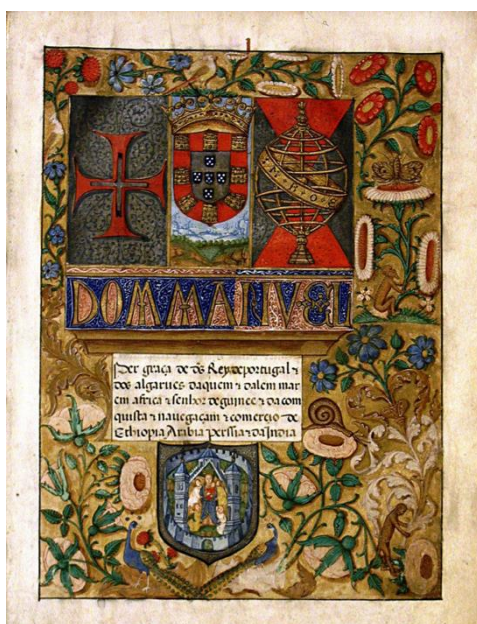 DOM MANUEL
Per graça de ds Rey de portugal ⁊
dos algarues daquem ⁊ dalem mar
em africa ⁊ senhor de guinee ⁊ da com
quista ⁊ nauegaçam ⁊ comerçio de
Ethiopia Arabia perssia ⁊ da India